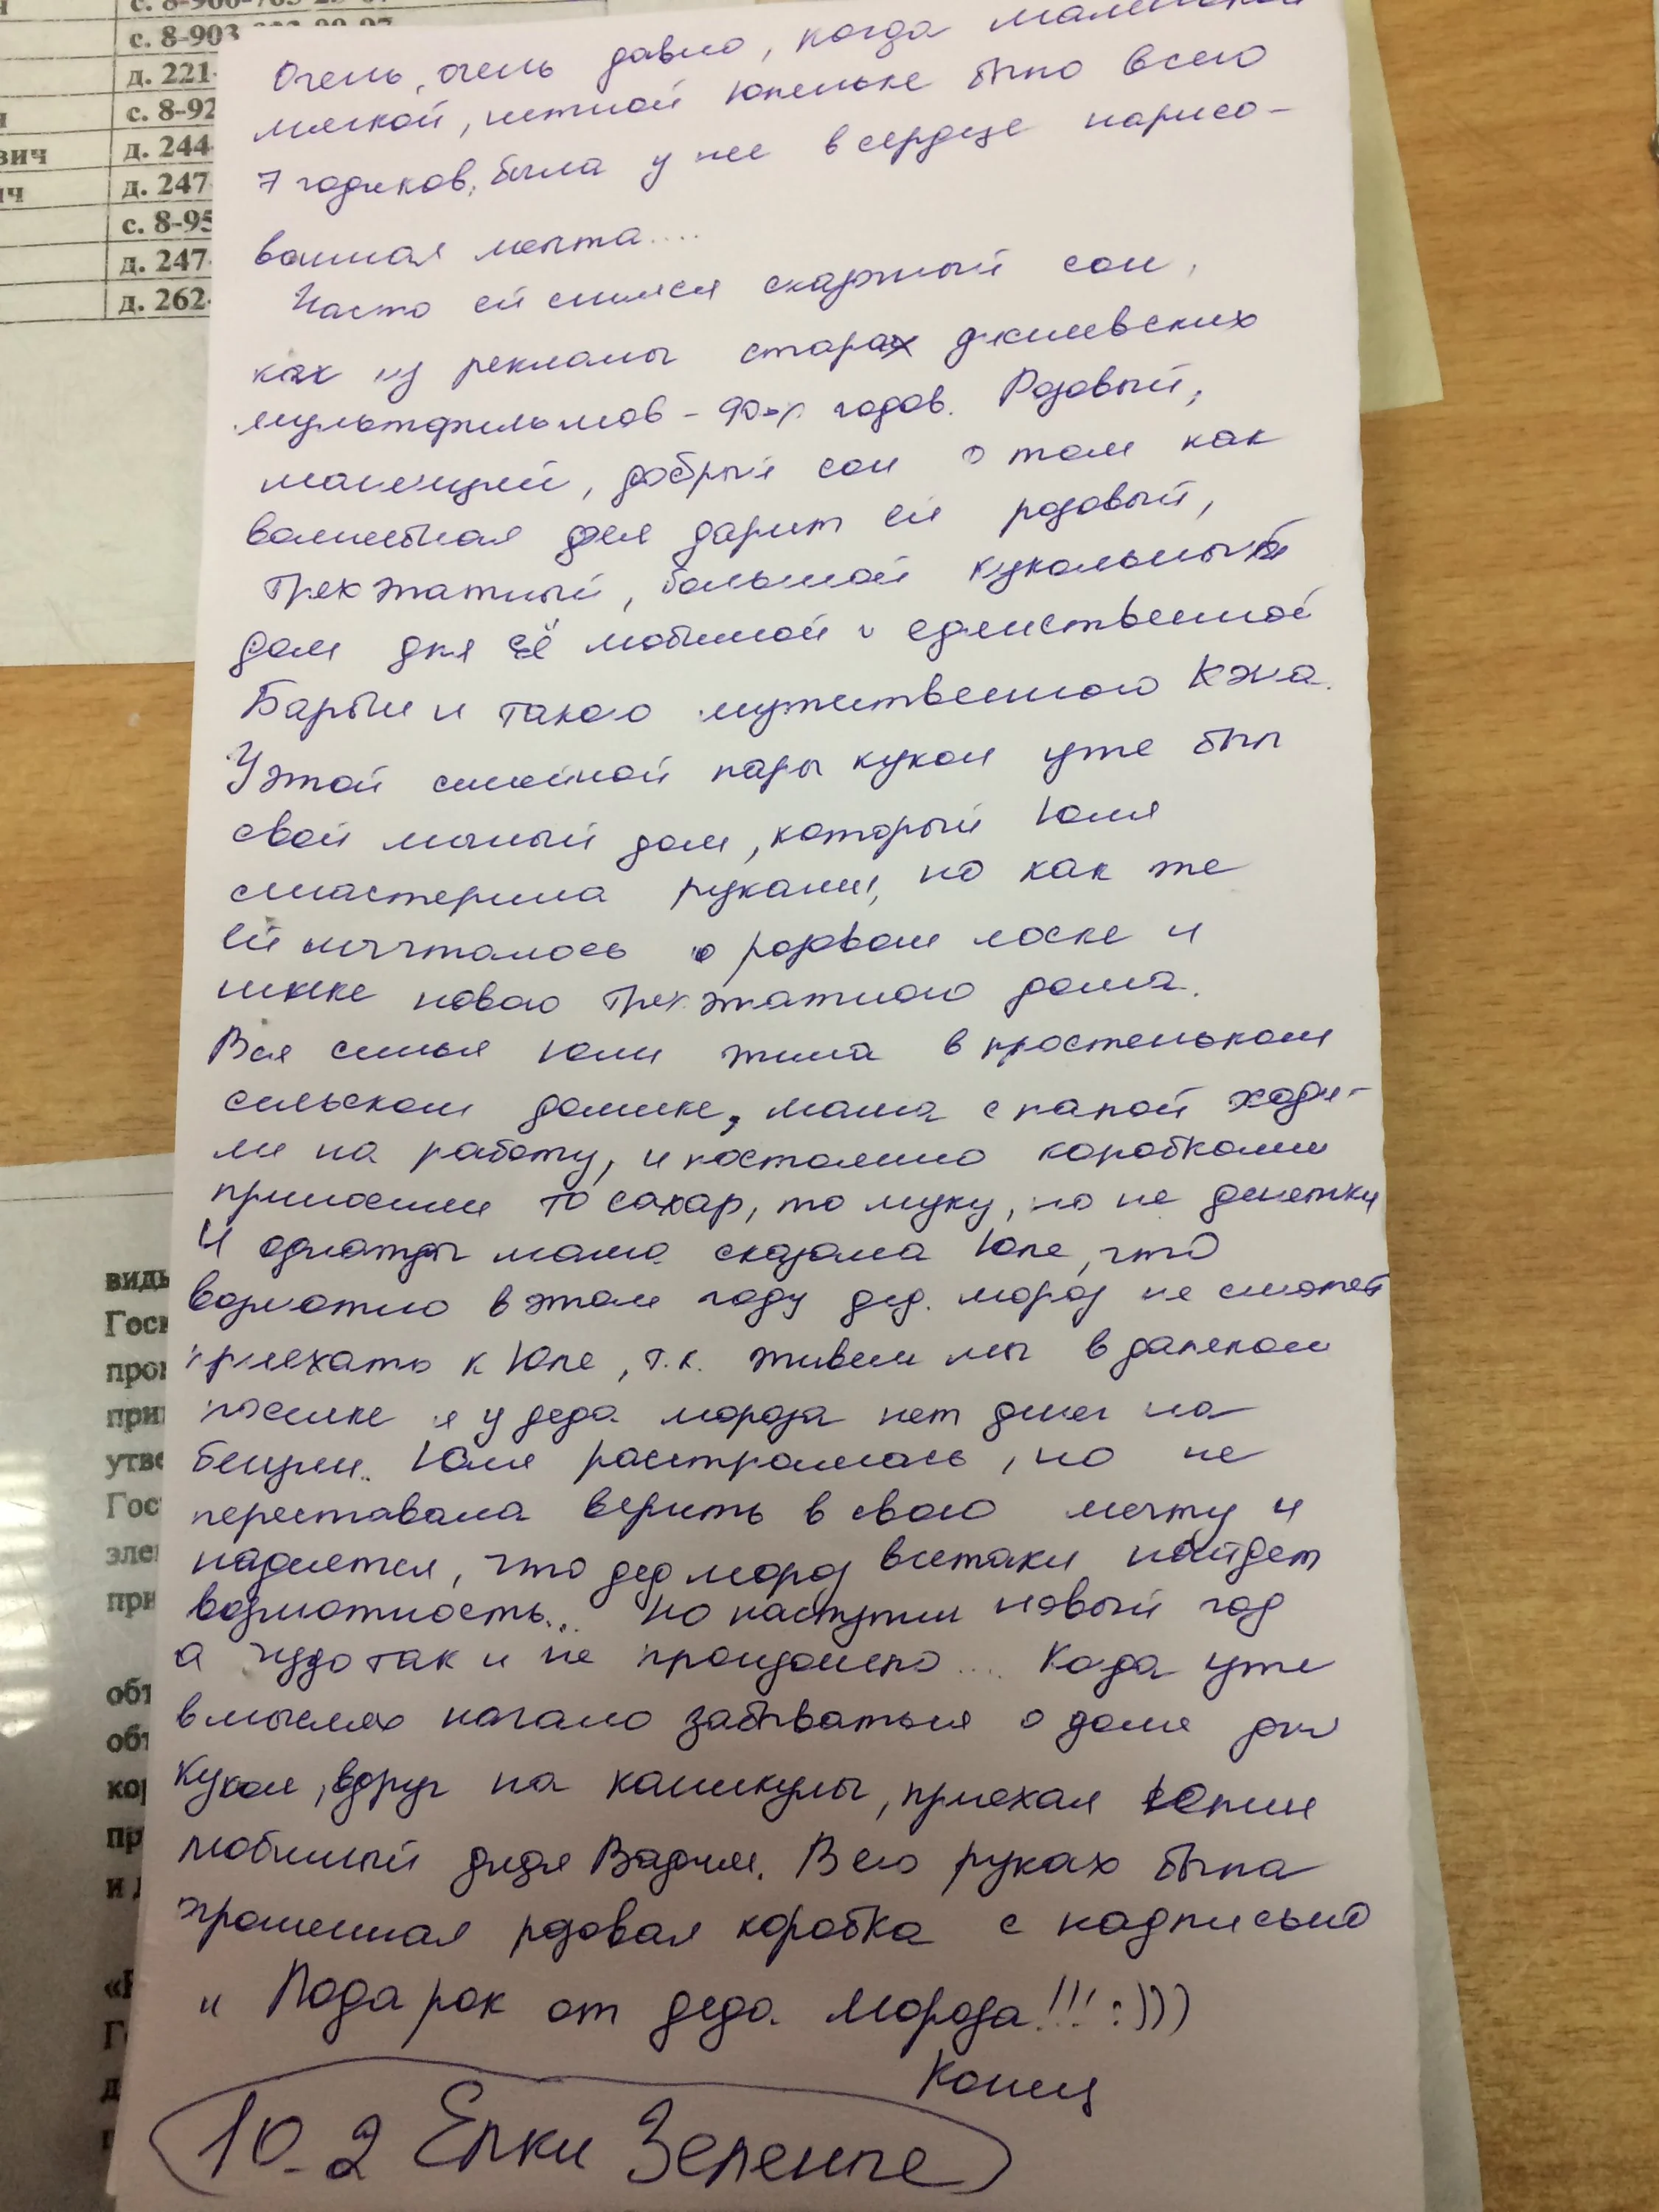 с. 8-903
д. 221-
с. 8-92
вич д. 244-
ич д. 247
с. 8-95
д. 247-
д. 262-
Очень, очень давно, когда маленькой
мягкой, нежной Юленьке было всего
7 годиков, была у нее в сердце нарисо-
ванная мечта....
Часто ей снился сказочный сон,
как из рекламы старах диснеевских
мультфильмов - 90-х годов. Розовый,
манящий, добрый сон о том как
волшебная фея дарит ей розовый,
трехэтажный, большой кукольный
дом для её любимой и единственной
Барби и такого мужественного Кэна.
У этой семейной пары кукол уже был
свой милый дом, который Юля
смастерила руками, но как же
ей мечталось о розовом лоске и
шике нового трехэтажного дома.
Вся семья Юли жила в простеньком
сельском домике, мама с папой ходи-
ли на работу, и постоянно коробками
приносили то сахар, то муку, но не денежки
И однажды мама сказала Юле, что
возможно в этом году дед. мороз не сможет
приехать к Юле, т.к. живем мы в далеком
поселке и у деда мороза нет денег на
бензин.. Юля расстроилась, но не
переставала верить в свою мечту и
надеятся, что дед мороз всетаки найдет
возможность... Но наступил новый год
а чудо так и не произошло.... Когда уже
в мыслях начало забываться о доме для
кукол, вдруг на каникулы, приехал Юлин
любимый дядя Вадим. В его руках была
огромная розовая коробка с надписью
" Подарок от деда мороза!!! :)))
Конец
10.2 Елки Зеленые
видь
Госк
прои
при
утве
Гос
эле
при
объ
объ
кор
пр
и д